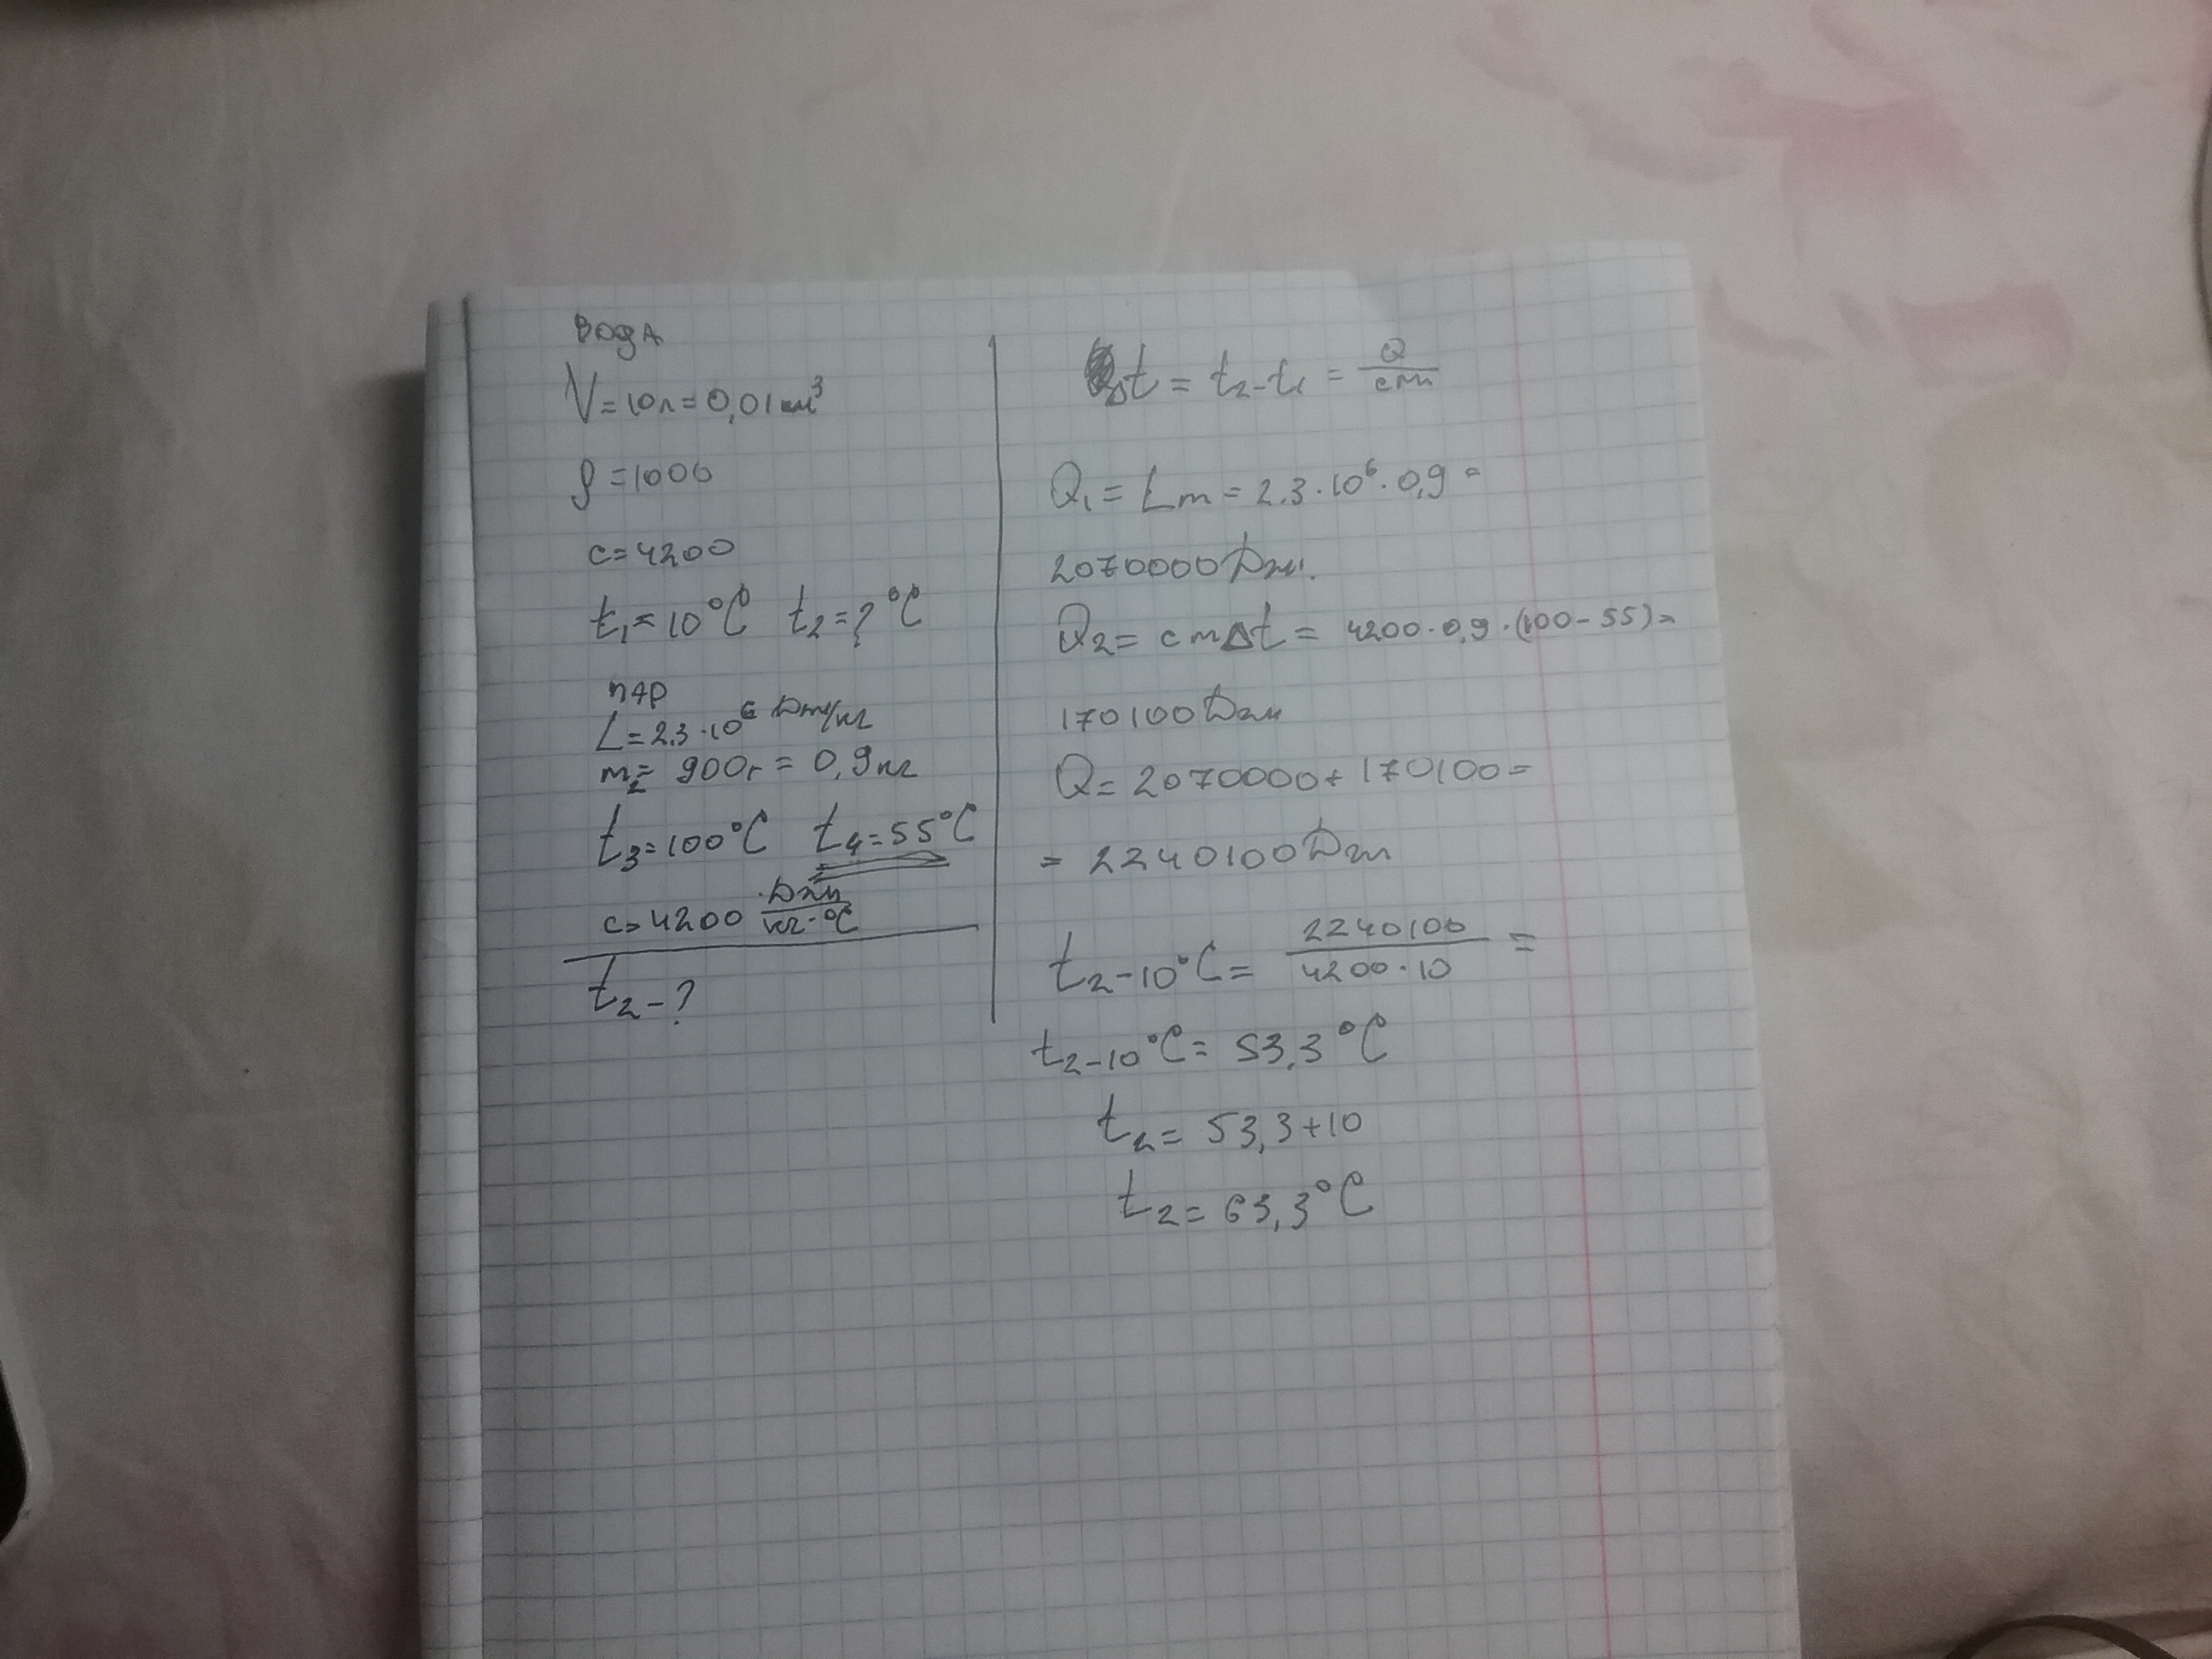 вода
V=10л=0,01 м³
ρ=1000
c=4200
t₁=10°C t₂=? °C
пар
L=2.3·10⁶ Дж/кг
m₂= 900г = 0,9кг
t₃=100°C t₄=55°C
c=4200 Дж/кг·°C
t₂-?
Δt = t₂-t₁ = Q/cm
Q₁= Lm = 2.3·10⁶·0,9=
2070000Дж.
Q₂= cmΔt = 4200·0,9·(100-55)=
170100Дж
Q= 2070000+170100=
= 2240100Дж
t₂-10°C= 2240100/4200·10 =
t₂-10°C= 53,3°C
t₂= 53,3+10
t₂= 63,3°C